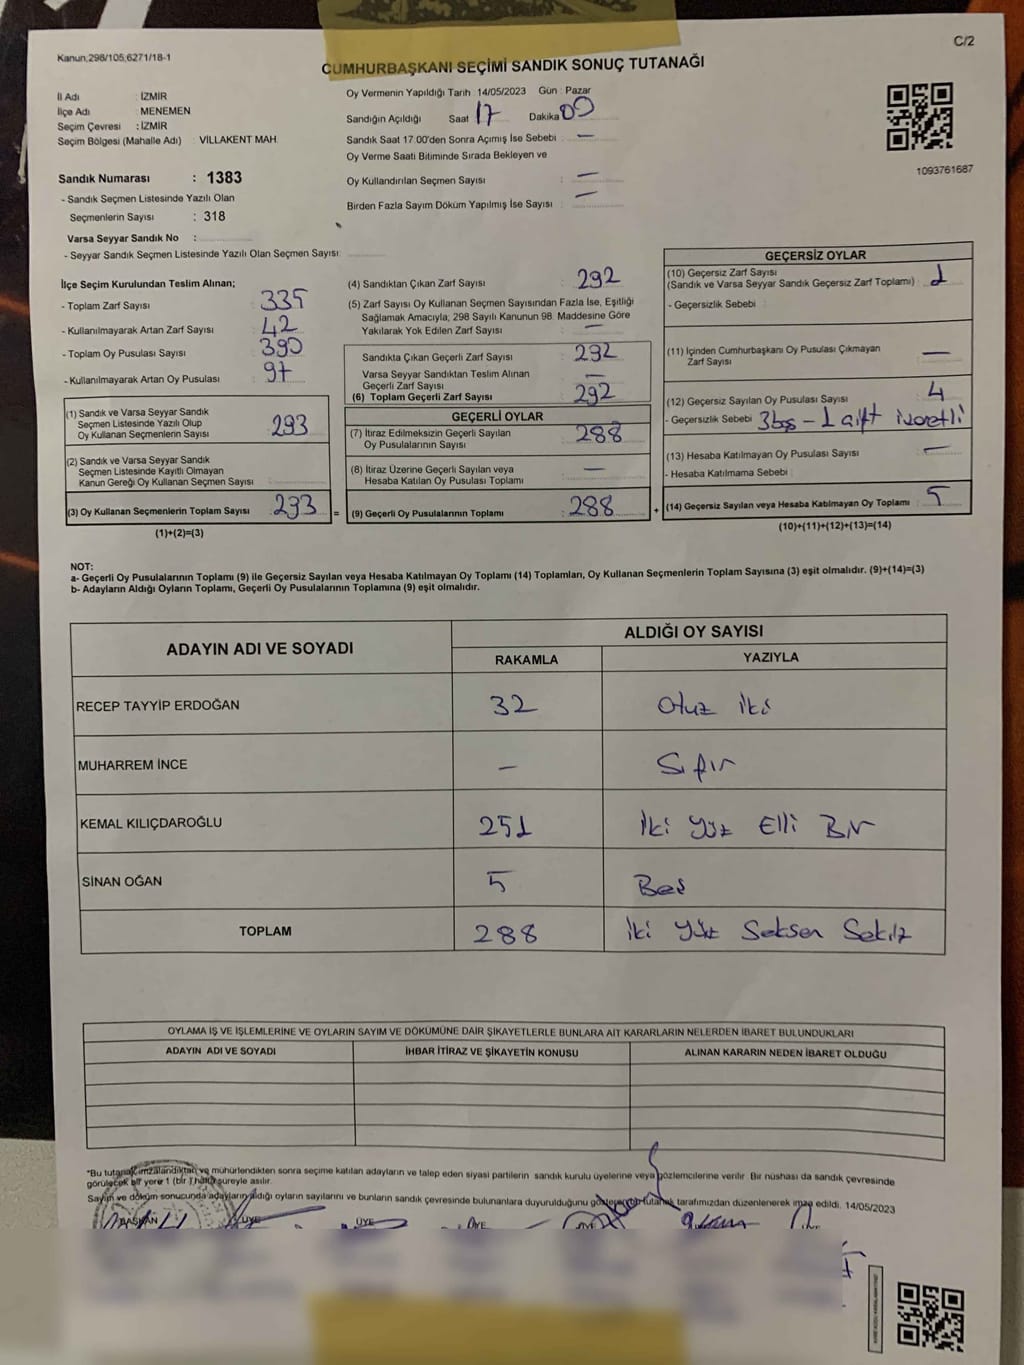 Kanun;298/105;6271/18-1
C/2
CUMHURBAŞKANI SEÇİMİ SANDIK SONUÇ TUTANAĞI
İl Adı : İZMİR
İlçe Adı : MENEMEN
Seçim Çevresi : İZMİR
Seçim Bölgesi (Mahalle Adı) : VİLLAKENT MAH
Sandık Numarası : 1383
- Sandık Seçmen Listesinde Yazılı Olan
Seçmenlerin Sayısı : 318
Varsa Seyyar Sandık No :
- Seyyar Sandık Seçmen Listesinde Yazılı Olan Seçmen Sayısı:
Oy Vermenin Yapıldığı Tarih : 14/05/2023 Gün : Pazar
Sandığın Açıldığı Saat 17 Dakika 00
Sandık Saat 17:00'den Sonra Açımış İse Sebebi : —
Oy Verme Saati Bitiminde Sırada Bekleyen ve
Oy Kullandırılan Seçmen Sayısı : —
Birden Fazla Sayım Döküm Yapılmış İse Sayısı : —
1093761687
İlçe Seçim Kurulundan Teslim Alınan;
- Toplam Zarf Sayısı : 335
- Kullanılmayarak Artan Zarf Sayısı : 42
- Toplam Oy Pusulası Sayısı : 390
- Kullanılmayarak Artan Oy Pusulası : 97
(1) Sandık ve Varsa Seyyar Sandık
Seçmen Listesinde Yazılı Olup
Oy Kullanan Seçmenlerin Sayısı : 293
(2) Sandık ve Varsa Seyyar Sandık
Seçmen Listesinde Kayıtlı Olmayan
Kanun Gereği Oy Kullanan Seçmen Sayısı :
(3) Oy Kullanan Seçmenlerin Toplam Sayısı : 293
(1)+(2)=(3)
(4) Sandıktan Çıkan Zarf Sayısı : 292
(5) Zarf Sayısı Oy Kullanan Seçmen Sayısından Fazla İse, Eşitliği
Sağlamak Amacıyla; 298 Sayılı Kanunun 98. Maddesine Göre
Yakılarak Yok Edilen Zarf Sayısı : —
Sandıkta Çıkan Geçerli Zarf Sayısı : 292
Varsa Seyyar Sandıktan Teslim Alınan
Geçerli Zarf Sayısı : —
(6) Toplam Geçerli Zarf Sayısı : 292
GEÇERLİ OYLAR
(7) İtiraz Edilmeksizin Geçerli Sayılan
Oy Pusulalarının Sayısı : 288
(8) İtiraz Üzerine Geçerli Sayılan veya
Hesaba Katılan Oy Pusulası Toplamı : —
= (9) Geçerli Oy Pusulalarının Toplamı : 288
GEÇERSİZ OYLAR
(10) Geçersiz Zarf Sayısı
(Sandık ve Varsa Seyyar Sandık Geçersiz Zarf Toplamı) : 1
- Geçersizlik Sebebi :
(11) İçinden Cumhurbaşkanı Oy Pusulası Çıkmayan
Zarf Sayısı : —
(12) Geçersiz Sayılan Oy Pusulası Sayısı : 4
- Geçersizlik Sebebi 3 boş - 1 çift işaretli
(13) Hesaba Katılmayan Oy Pusulası Sayısı : —
- Hesaba Katılmama Sebebi :
+ (14) Geçersiz Sayılan veya Hesaba Katılmayan Oy Toplamı : 5
(10)+(11)+(12)+(13)=(14)
NOT:
a- Geçerli Oy Pusulalarının Toplamı (9) ile Geçersiz Sayılan veya Hesaba Katılmayan Oy Toplamı (14) Toplamları, Oy Kullanan Seçmenlerin Toplam Sayısına (3) eşit olmalıdır. (9)+(14)=(3)
b- Adayların Aldığı Oyların Toplamı, Geçerli Oy Pusulalarının Toplamına (9) eşit olmalıdır.
ADAYIN ADI VE SOYADI
ALDIĞI OY SAYISI
RAKAMLA YAZIYLA
RECEP TAYYİP ERDOĞAN 32 Otuz iki
MUHARREM İNCE — Sıfır
KEMAL KILIÇDAROĞLU 251 İki Yüz Elli Bir
SİNAN OĞAN 5 Beş
TOPLAM 288 İki Yüz Seksen Sekiz
OYLAMA İŞ VE İŞLEMLERİNE VE OYLARIN SAYIM VE DÖKÜMÜNE DAİR ŞİKAYETLERLE BUNLARA AİT KARARLARIN NELERDEN İBARET BULUNDUKLARI
ADAYIN ADI VE SOYADI İHBAR İTİRAZ VE ŞİKAYETİN KONUSU ALINAN KARARIN NEDEN İBARET OLDUĞU
*Bu tutanak imzalandıktan ve mühürlendikten sonra seçime katılan adayların ve talep eden siyasi partilerin sandık kurulu üyelerine veya gözlemcilerine verilir. Bir nüshası da sandık çevresinde
görülecek bir yere 1 (bir) hafta süreyle asılır.
Sayım ve döküm sonucunda adayların aldığı oyların sayılarını ve bunların sandık çevresinde bulunanlara duyurulduğunu gösteren bu tutanak tarafımızdan düzenlenerek imza edildi. 14/05/2023
BAŞKAN ÜYE ÜYE ÜYE